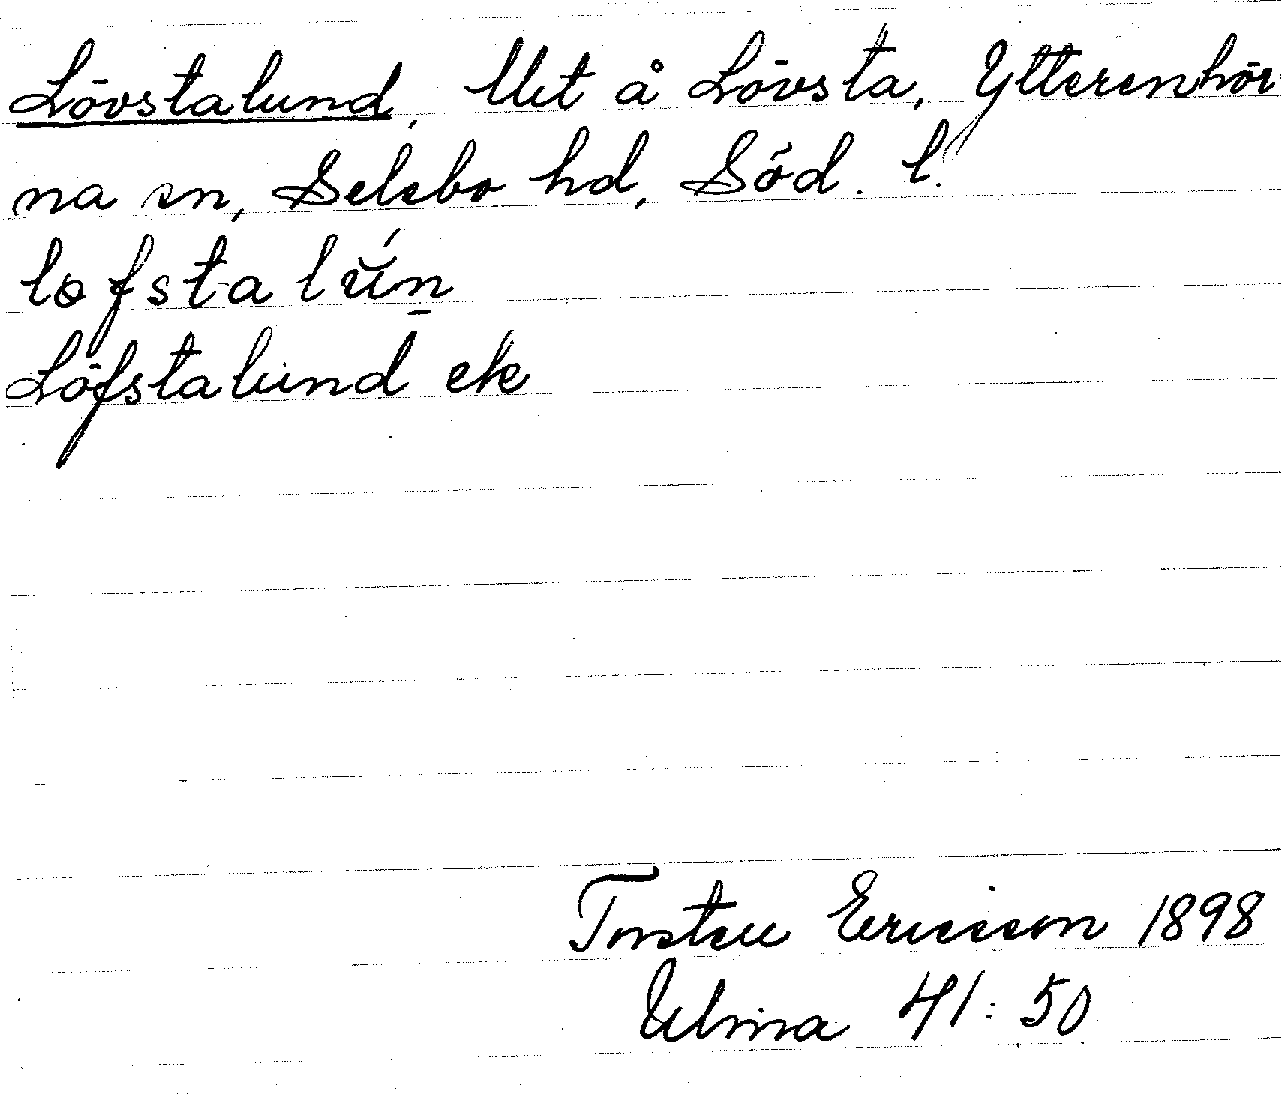 Lövstalund, Utt å Lövsta, Ytterenhör
na sn, Selebo hd, Söd. l.
löfstalún
Löfstalund ek
Torsten Ericsson 1898
Ulma 41:50